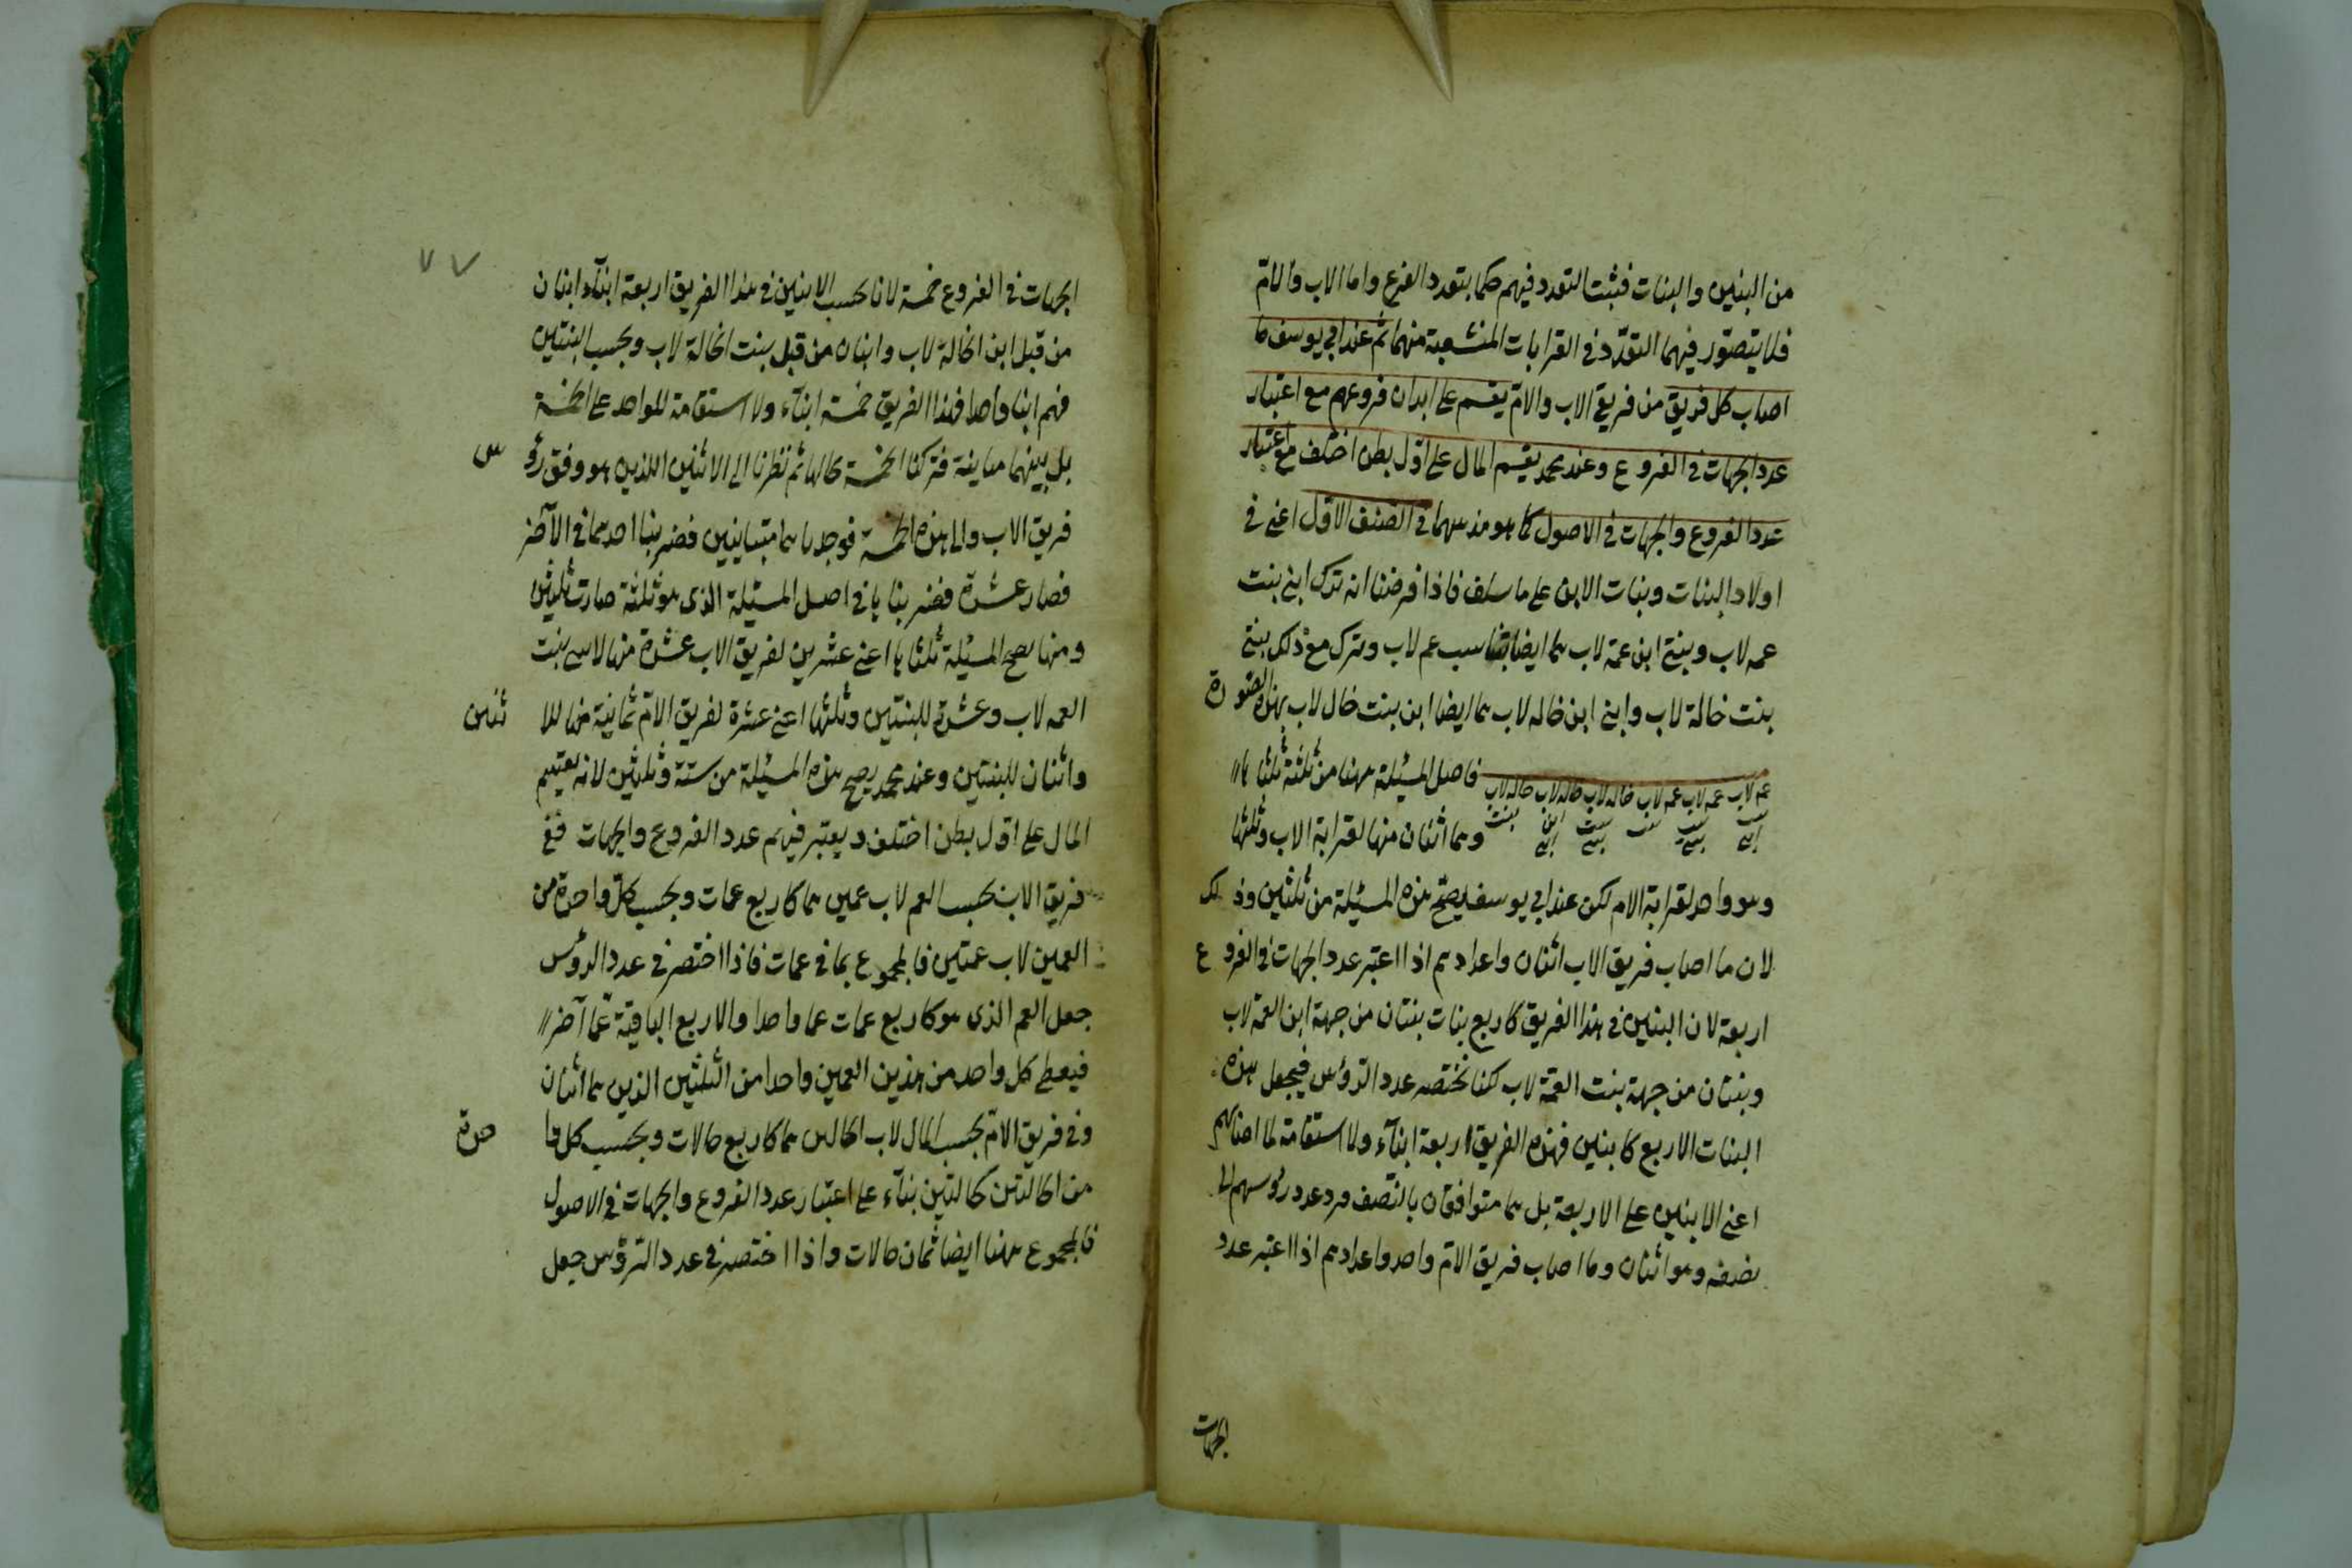 من البنين والبنات فثبت التعدد فيهم حكما بتعدد الفرع واما الاب والام
فلا يتصور فيهما التعدد في القرابات المنشعبة منهما ثم عند ابي يوسف ما
اصاب كل فريق من فريقي الاب والام يقسم على ابدان فروعهم مع اعتبار
عدد الجهات في الفروع وعند محمد يقسم المال على اول بطن اختلف مع اعتبار
عدد الفروع والجهات في الاصول كما هو مذهبهما في الصنف الاول اعني في
اولاد البنات وبنات الابن على ما سلف فاذا فرضنا انه ترك ابني بنت
عمه لاب وبنتي ابن عمة لاب هما ايضا بنتا بنت عم لاب وترك مع ذلك بنتي
بنت خالة لاب وابني ابن خاله لاب هما ايضا ابن بنت خال لاب بهذه الصورة
فاصل المسئلة ههنا من ثلثة ثلثاها
عم لاب عمه لاب عمه لاب خاله لاب خاله لاب خال لاب
بنت بنت بنت ابن بنت
وهما اثنان منها لقرابة الاب وثلثها
وهو واحد لقرابة الام لكن عند ابي يوسف يصح هذه المسئلة من ثلثين وذلك
لان ما اصاب فريق الاب اثنان واعدادهم اذا اعتبر عدد الجهات في الفروع
اربعة لان البنتين في هذا الفريق كاربع بنات بنتان من جهة ابن العمة لاب
وبنتان من جهة بنت العم لاب لكنا نختصر عدد الرؤس فيجعل هذه
البنات الاربع كابنين فهذه الفريق اربعة ابناء ولا استقامة لما اصابهم
اعني الاثنين على الاربعة بل هما متوافقان بالنصف فرد عدد رؤسهم الى
نصفه وهو اثنان وما اصاب فريق الام واحد واعدادهم اذا اعتبر عدد
الجهات
٧٧
الجهات في الفروع خمسة لانا نحسب الابنين في هذا الفريق اربعة ابناء ابنان
من قبل ابن الخالة لاب وابنان من قبل بنت الخالة لاب ونحسب البنتين
فهم ابنا واحدا فهذا الفريق خمسة ابناء ولا استقامة للواحد على الخمسة
بل بينهما مباينة فتركنا الخمسة بحالها ثم نظرنا الى الاثنين اللذين هو وفق رؤس
فريق الاب والى هذه الخمسة فوجدناهما متباينين فضربنا احدهما في الآخر
فصار عشرة فضربناها في اصل المسئلة الذى هو ثلثة صارت ثلثين
ومنها يصح المسئلة ثلثاها اعني عشرين لفريق الاب عشرة منها لابني بنت
العمه لاب وعشرة للبنتين وثلثها اعني عشرة لفريق الام ثمانية منها للاثنين
واثنان للبنتين وعند محمد يصح هذه المسئلة من ستة وثلثين لانه يقسم
المال على اول بطن اختلف ويعتبر فيهم عدد الفروع والجهات ففي
فريق الاب نحسب العم لاب عمين هما كاربع عمات ونحسب كل واحدة من
العمتين لاب عمتين فالمجموع ثماني عمات فاذا اختصر في عدد الرؤس
جعل العم الذى هو كاربع عمات عما واحدا والاربع الباقية عما آخر
فيعطى كل واحد من هذين العمين واحدا من الثلثين الذين هما اثنان
وفي فريق الام نحسب الخال لاب الخالين هما كاربع خالات ونحسب كل واحدة
من الخالتين كخالتين بناء على اعتبار عدد الفروع والجهات في الاصول
فالمجموع ههنا ايضا ثمان خالات واذا اختصر في عدد الرؤس جعل